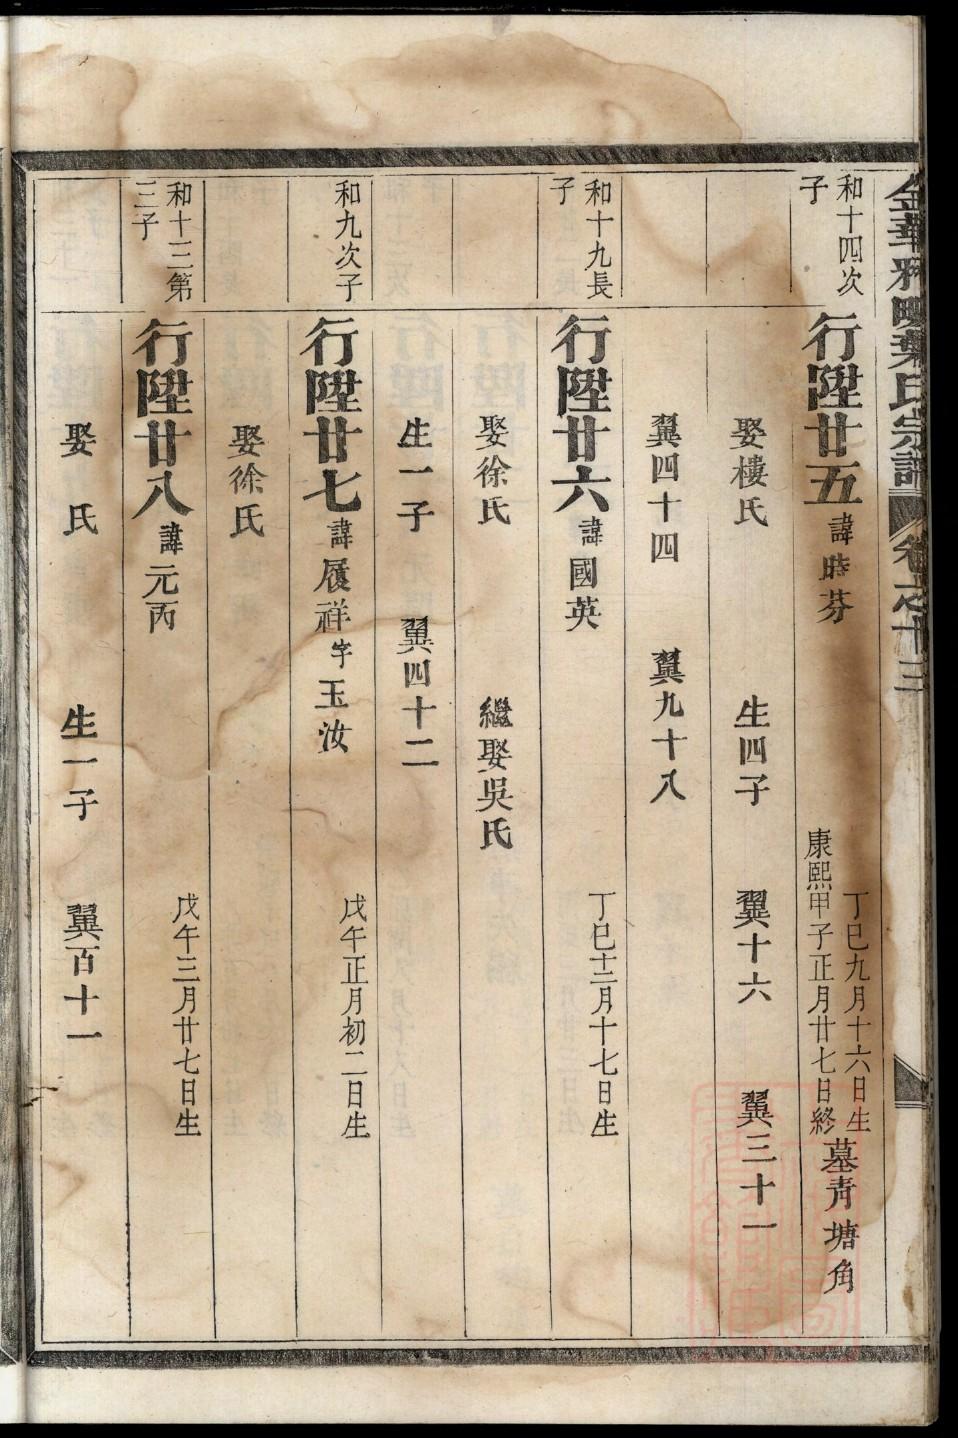 葉氏宗譜
卷之十三
和十四次
子
行陞廿五
諱時芬
丁巳九月十六日生
康熙甲子正月廿七日終
墓青塘角
娶樓氏
生四子
翼十六
翼三十一
翼四十四
翼九十八
和十九長
子
行陞廿六
諱國英
丁巳十二月十七日生
娶徐氏
繼娶吳氏
生一子
翼四十二
和九次子
行陞廿七
諱履祥字玉汝
戊午正月初二日生
娶徐氏
和十三第
三子
行陞廿八
諱元丙
戊午三月廿七日生
娶 氏
生一子
翼百十一